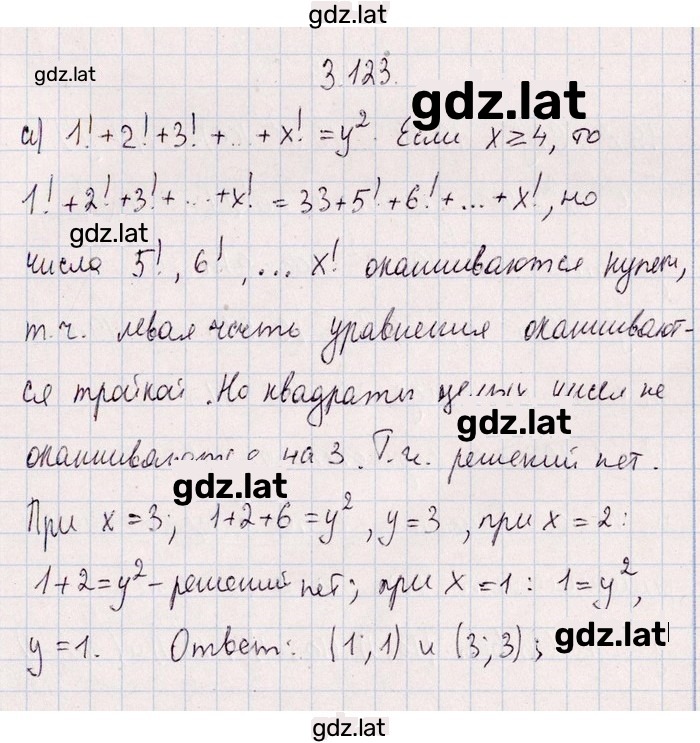 gdz.lat
gdz.lat
3.123.
gdz.lat
а) 1! + 2! + 3! + ... + x! = y². Если x ≥ 4, то
1! + 2! + 3! + ... + x! = 33 + 5! + 6! + ... + x!, но
gdz.lat
числа 5!, 6!, ... x! оканчиваются нулем,
т.ч. левая часть уравнения оканчивают-
ся тройкой. Но квадраты целых чисел не
gdz.lat
оканчиваются на 3. Т.ч. решений нет.
gdz.lat
При x = 3; 1 + 2 + 6 = y², y = 3, при x = 2:
1 + 2 = y² - решений нет; при x = 1: 1 = y²,
y = 1. Ответ: (1; 1) и (3; 3);
gdz.lat
gdz.lat